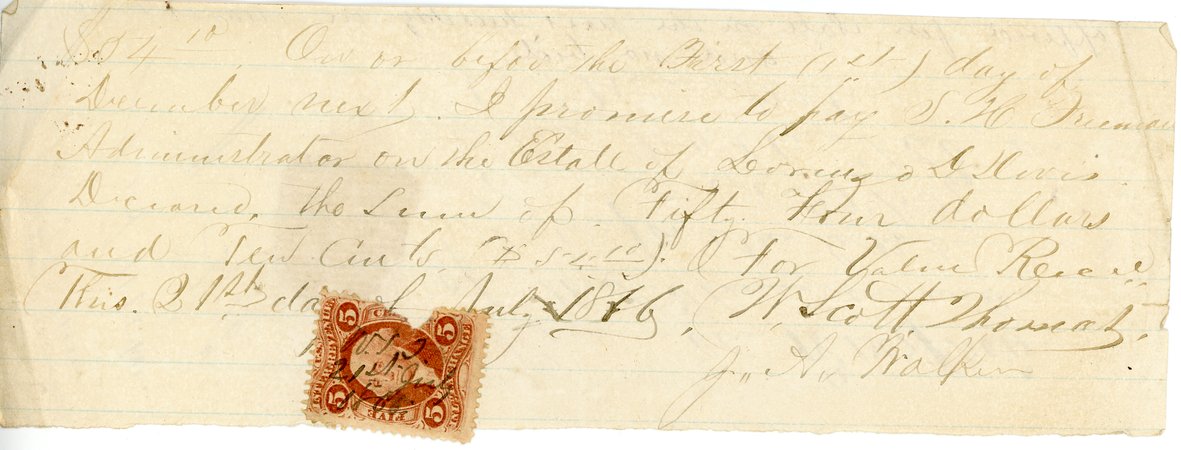 $54 10. On or before the First (1st) day of
December next. I promise to pay S. H. Freeman
Administrator on the Estate of D
Deceased, the Sum of Fifty Four dollars
and Ten Cents, ($54 10). For Value Receved
This 21st day of July 1866, W. Scott Thomas,
J. A. Walker
5 5
INTER. REVENUE EXCHANGE
21st July
5 FIVE 5